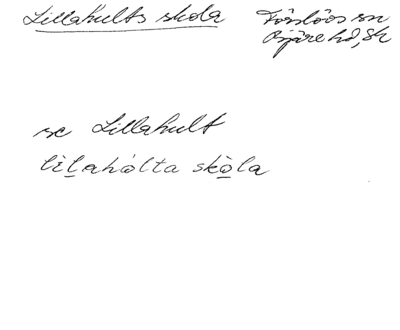 Lillahults skola
Förslövs sn
Bjäre hd, Sk
se Lillahult
lìlahòlta skòla